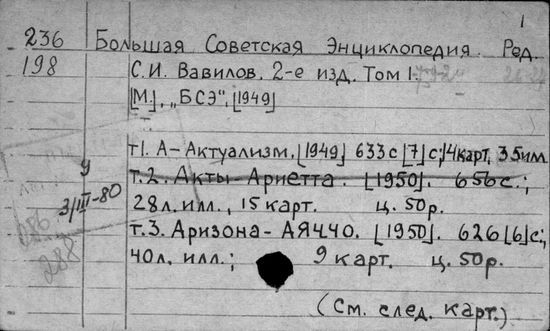 1
236 Большая Советская Энциклопедия. Ред.
198 С.И. Вавилов. 2-е изд. Том 1-
[М.], „БСЭ", [1949]
т1. А - Актуализм. [1949] 633с [7]с; 14карт, 35илл
т.2. Акты - Ариетта. [1950]. 656с.;
9
3/III-80 28л. илл., 15 карт. ц. 50р.
т.3. Аризона - АЯЧЧО. [1950]. 626[6]с;
40л. илл.; 9 карт. ц. 50р.
288
(См. след. карт.)